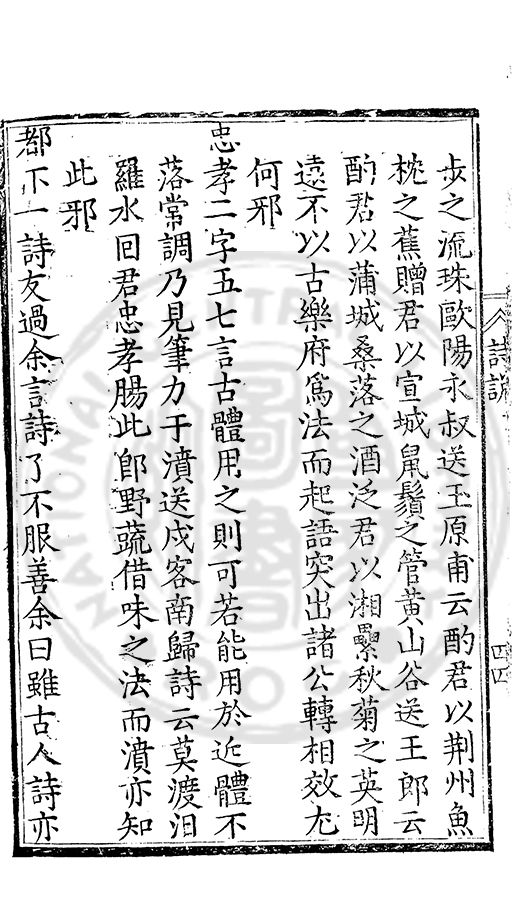 步之流珠歐陽永叔送王原甫云酌君以荆州魚
枕之蕉贈君以宣城鼠鬚之管黄山谷送王郎云
酌君以蒲城桑落之酒泛君以湘纍秋菊之英明
遠不以古樂府爲法而起語突出諸公轉相效尤
何邪
忠孝二字五七言古體用之則可若能用於近體不
落常調乃見筆力于濆送戍客南歸詩云莫渡汨
羅水回君忠孝腸此郎野蔬借味之法而濆亦知
此邪
都下一詩友過余言詩了不服善余曰雖古人詩亦
詩說
四四
NATIONAL